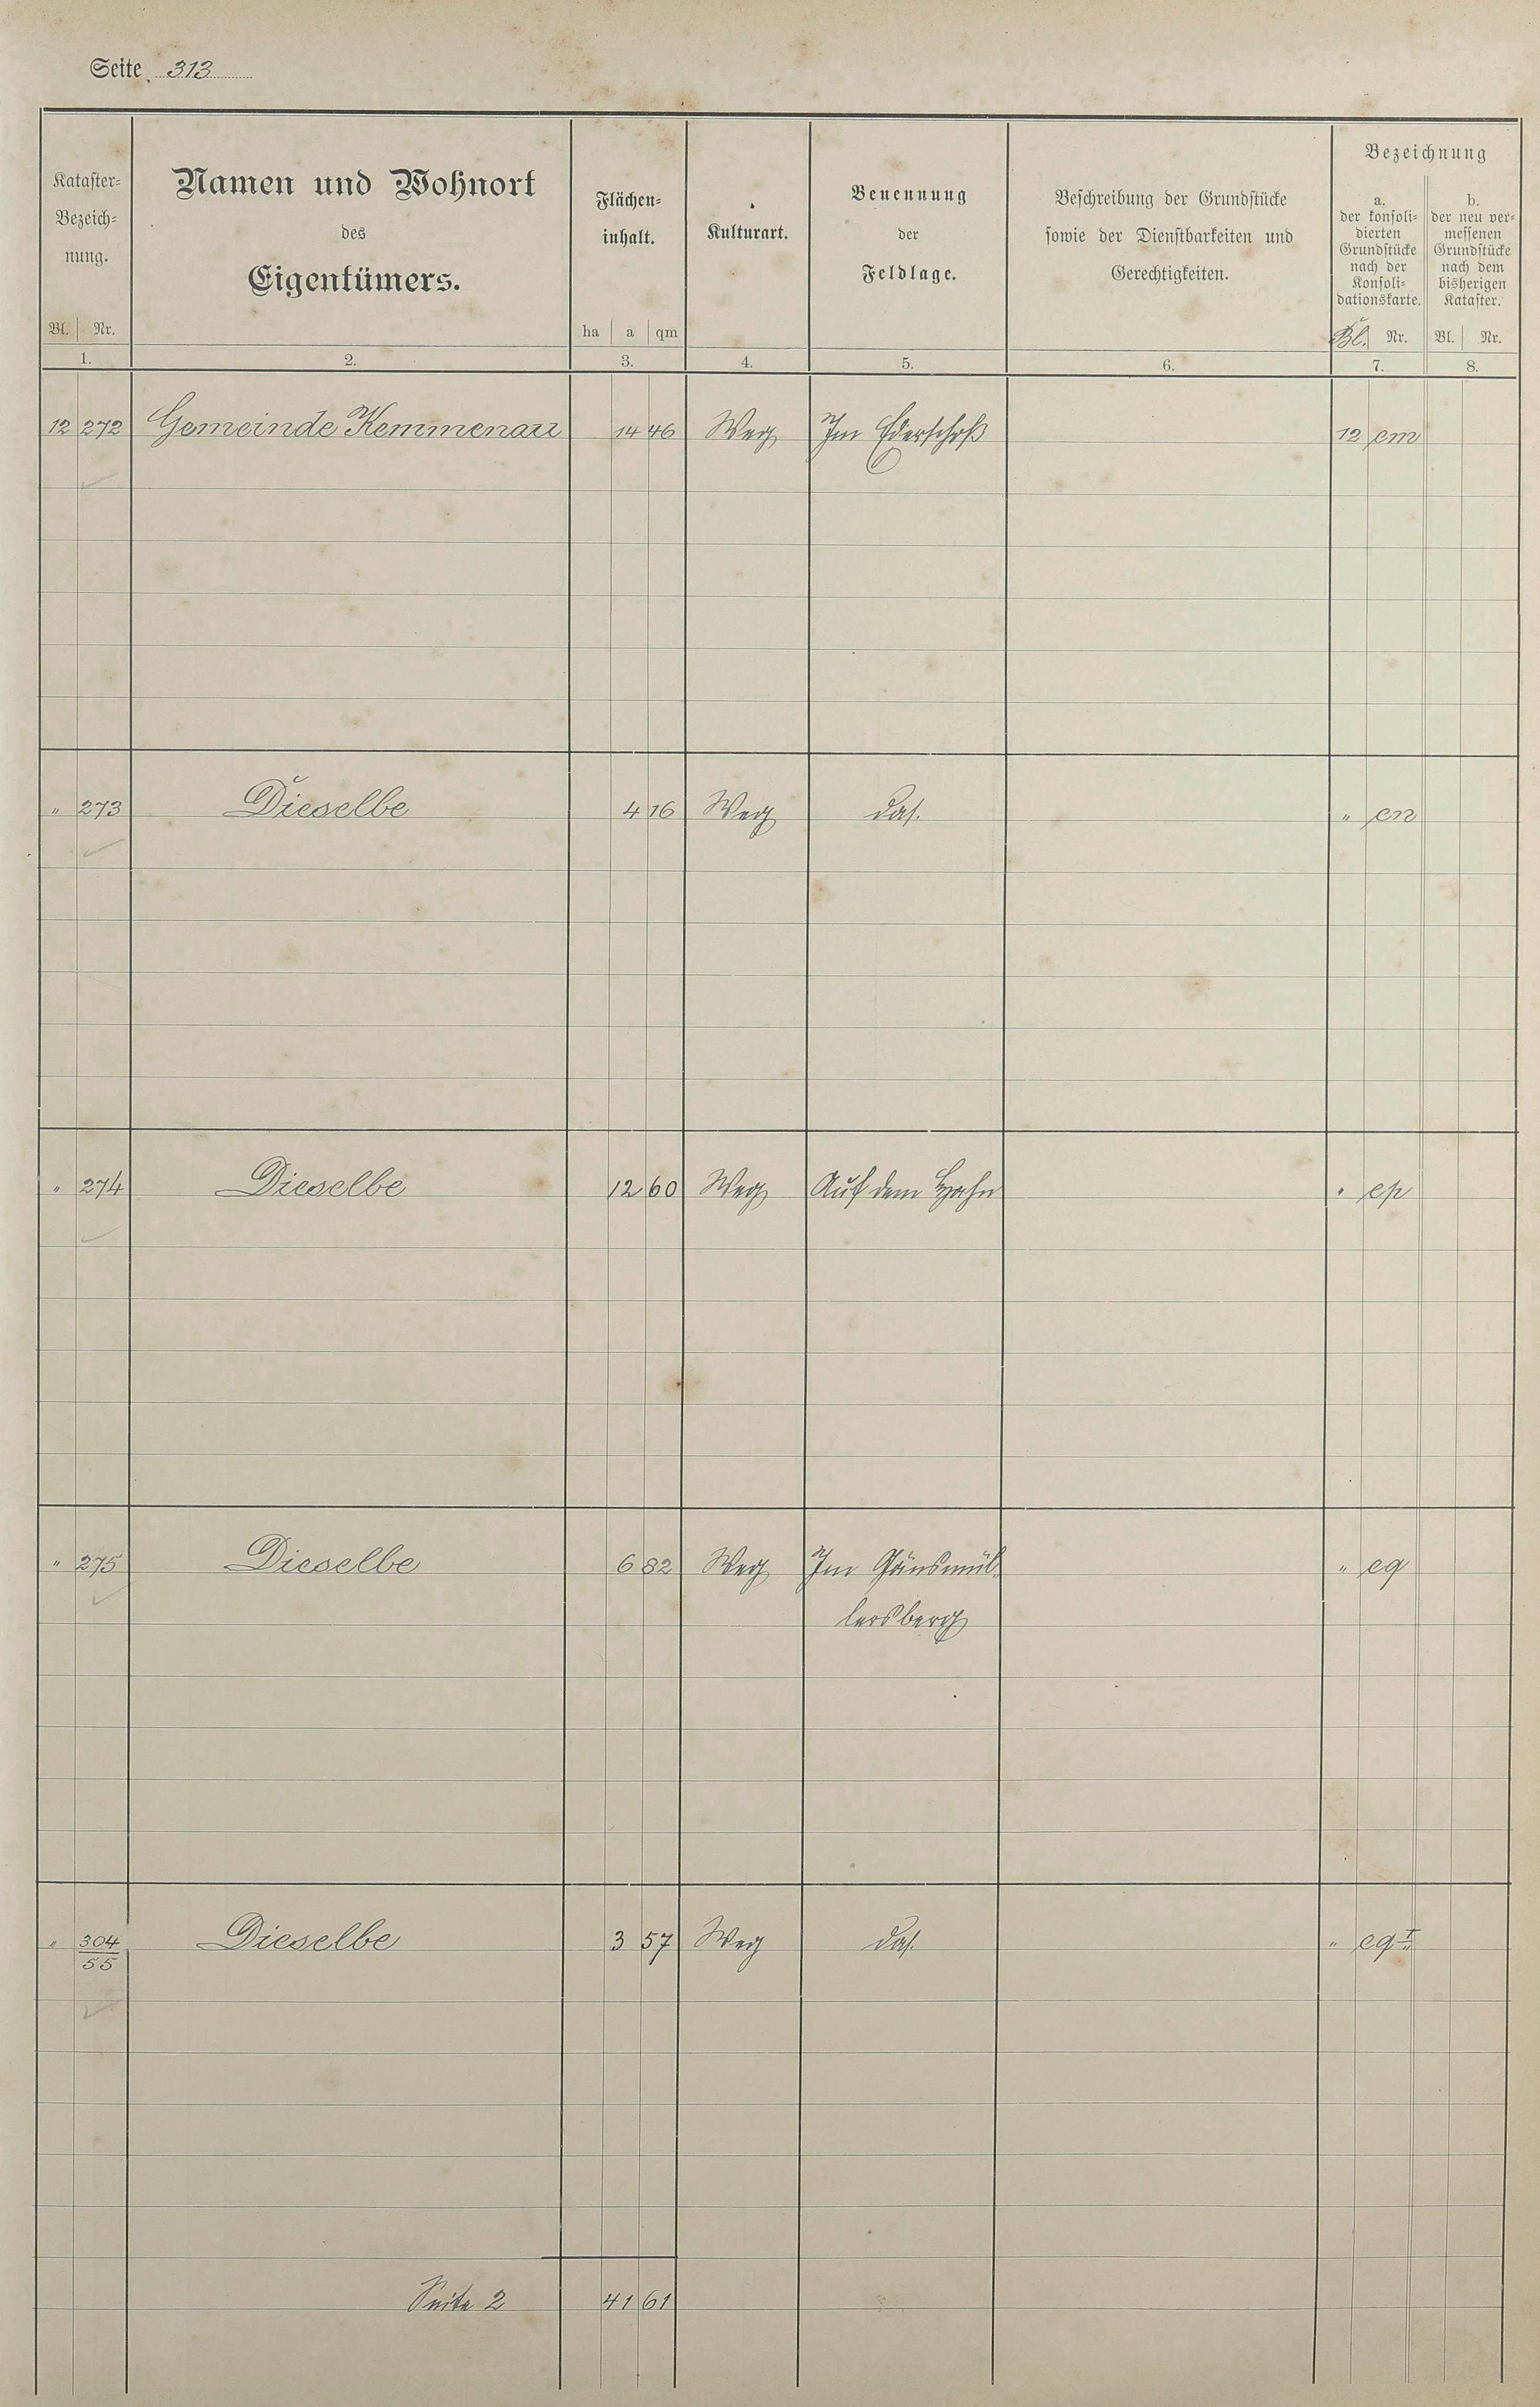 Seite 313
Kataster-
Bezeich-
nung.
Bl. Nr.
1.
Namen und Wohnort
des
Eigentümers.
2.
Flächen-
inhalt.
ha a qm
3.
Kulturart.
4.
Benennung
der
Feldlage.
5.
Beschreibung der Grundstücke
sowie der Dienstbarkeiten und
Gerechtigkeiten.
6.
Bezeichnung
a.
der konsoli-
dierten
Grundstücke
nach der
Konsoli-
dationskarte.
Bl. Nr.
7.
b.
der neu ver-
messenen
Grundstücke
nach dem
bisherigen
Kataster.
Bl. Nr.
8.
12 272 Gemeinde Kemmenau 14 46 Weg Im 12 em
" 273 Dieselbe 4 16 Weg das. " en
" 274 Dieselbe 12 60 Weg Auf dem Hahn " ep
" 275 Dieselbe 6 82 Weg Im Gänsmül- " eq
lersberg
" 304 Dieselbe 3 57 Weg das. " eq I
55
Seite 2 41 61